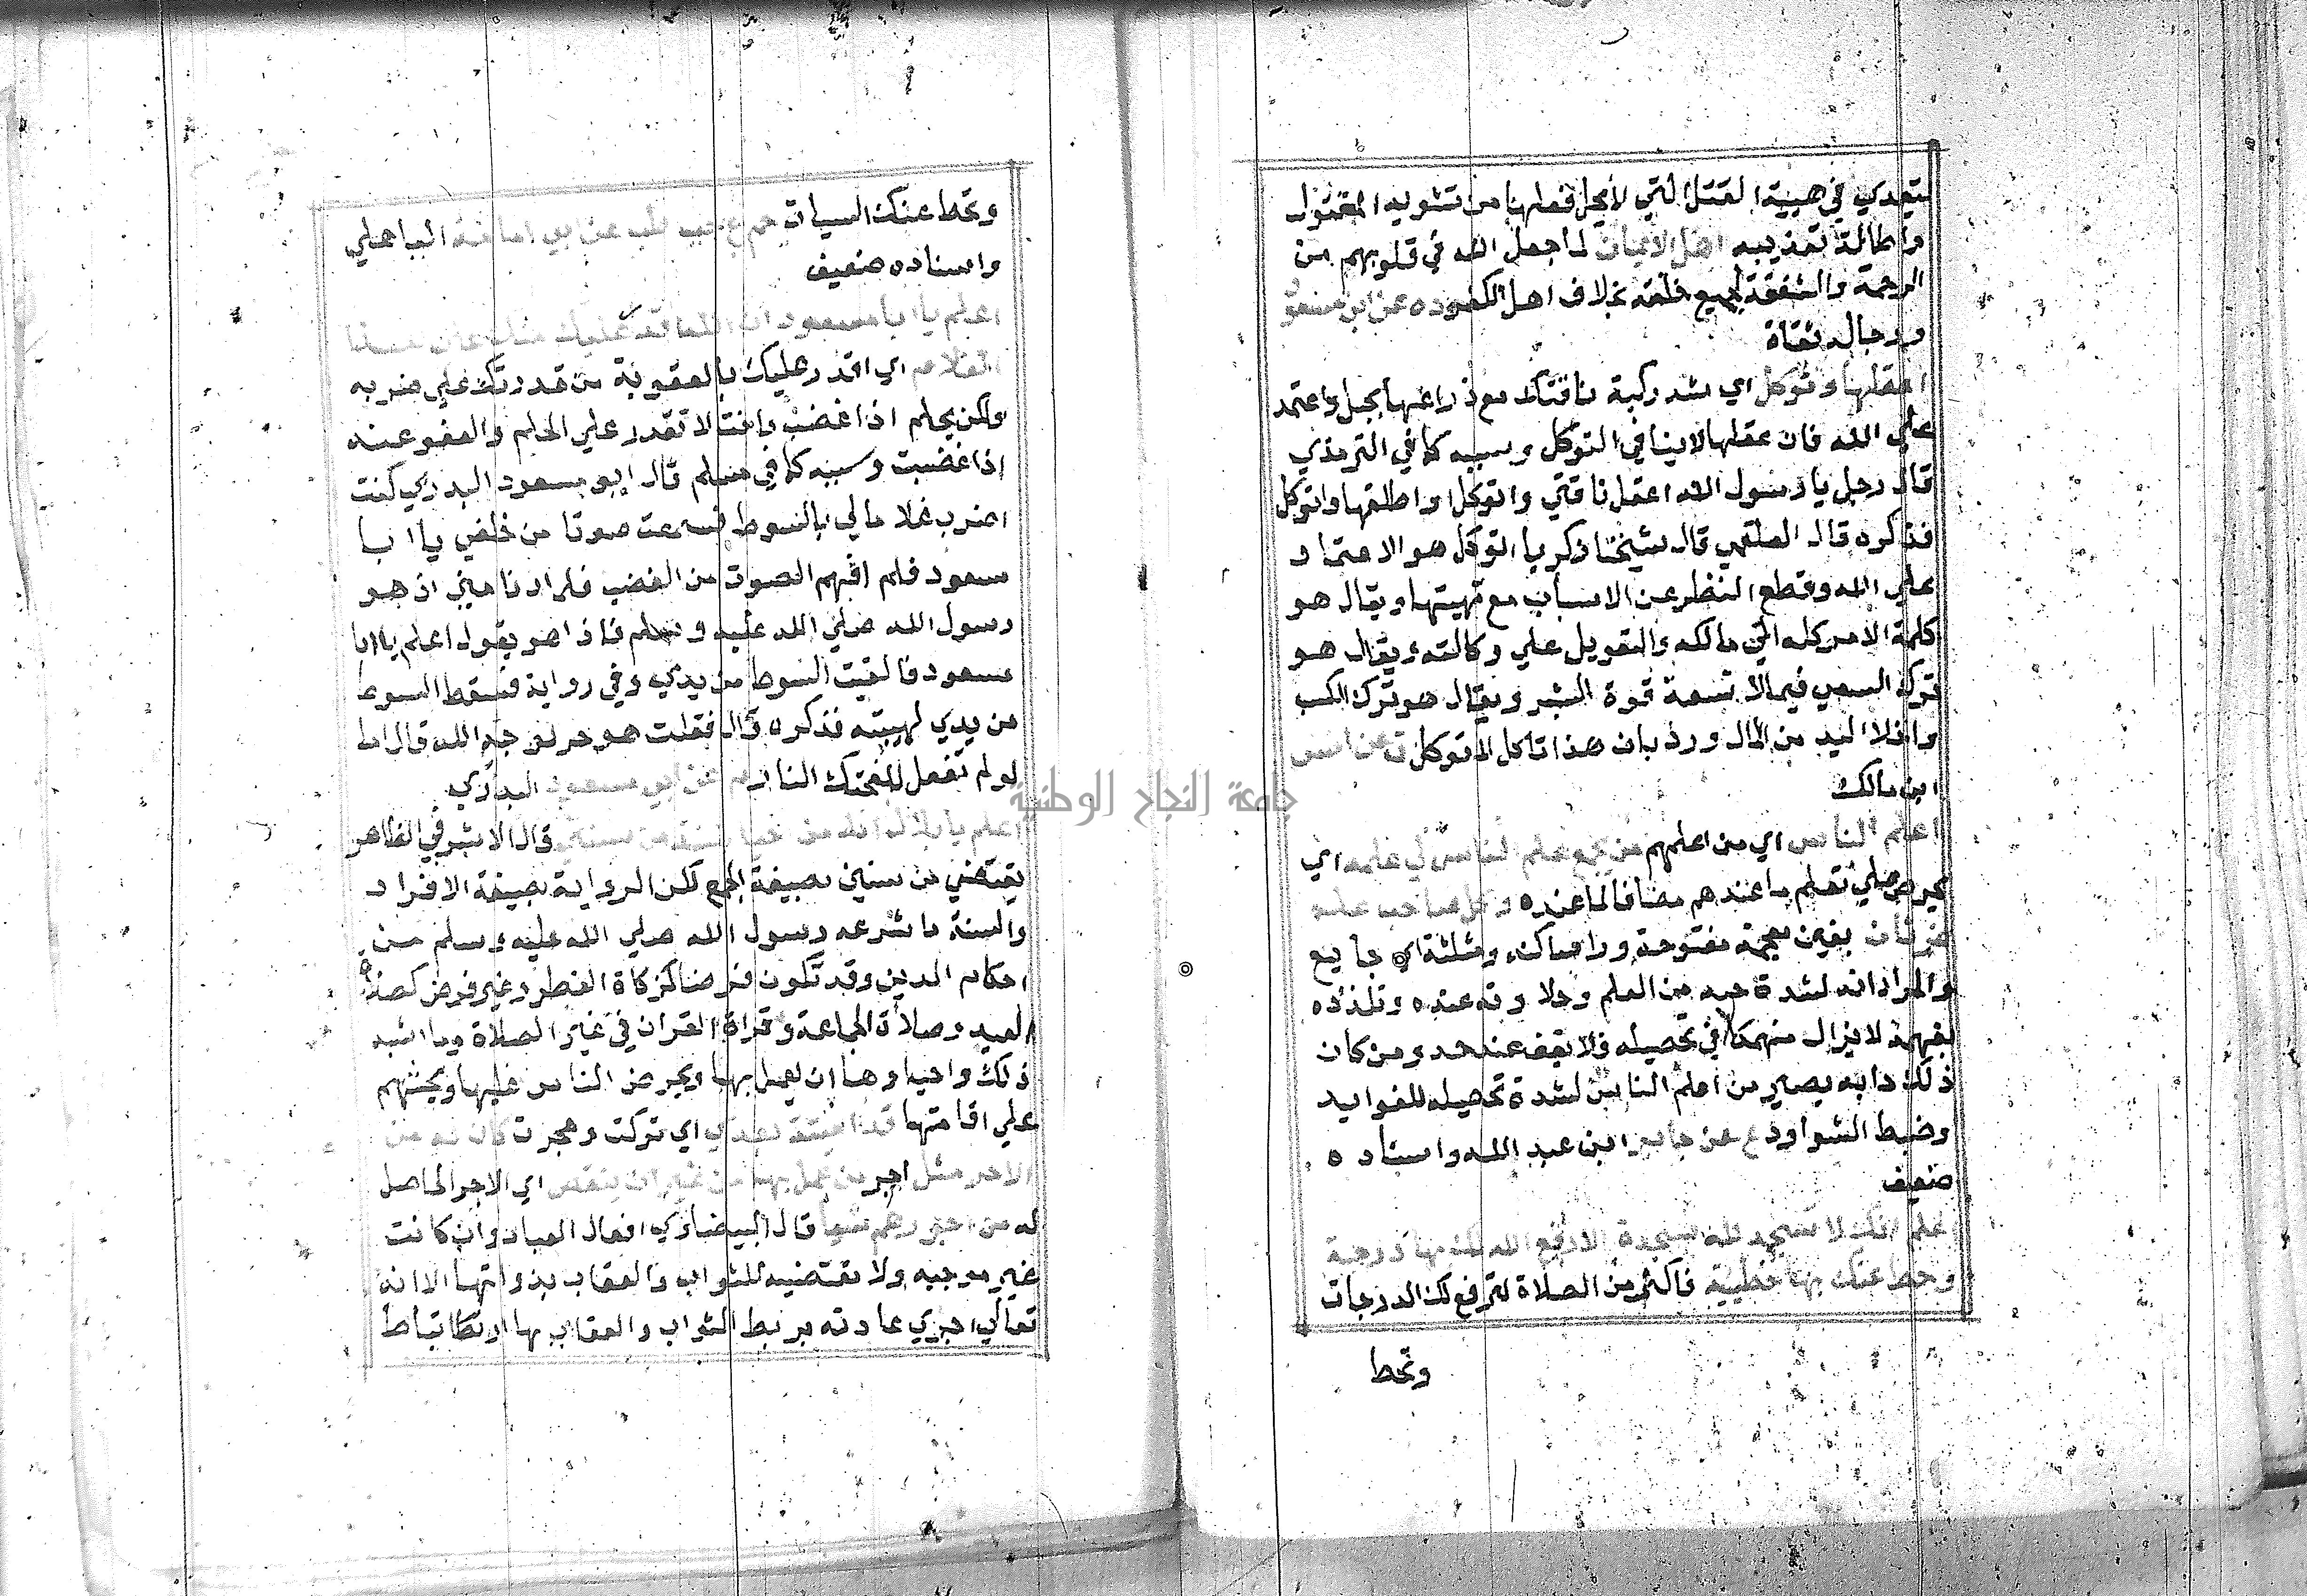 يتعدي في هيئة القتل التي لا يحل فعلها من تشويه المقتول
واطالة تعذيبه اهل الايمان لما جعل الله في قلوبهم من
الرحمة والشفقة لجميع خلقه بخلاف اهل الكفر ده عن ابن مسعود
ورجاله ثقاة
اعقلها وتوكل اي شد ركبة ناقتك مع ذراعها بحبل واعتمد
علي الله فان عقلها لا ينافي التوكل وسببه كما في الترمذي
قال رجل يا رسول الله اعقل ناقتي واتوكل او اطلقها واتوكل
فذكره قال العلقمي قال شيخنا زكريا التوكل هو الاعتماد
علي الله وقطع النظر عن الاسباب مع تهيئتها ويقال هو
كلة الامر كله الي مالكه والتعويل علي وكالته ويقال هو
ترك السعي فيما لا تسعه قوة البشر ويقال هو ترك الكسب
واخلا اليد من المال ورد بان هذا تاكل لا توكل ت عن انس
ابن مالك
اعلم الناس اي من اعلمهم من يجمع علم الناس الي علمه اي
يحرص علي تعلم ما عندهم مضافا لما عنده وكل صاحب علم
غرثان بغين معجمة مفتوحة وراء ساكنة ومثلثة اي جايع
والمراد انه لشدة حبه من العلم وحلاوته عنده وتلذذه
بفهمه لا يزال منهمكا في تحصيله فلا يقف عند حد ومن كان
ذلك دابه يصير من اعلم الناس لشدة تحصيله للفوايد
وضبط الشوارد ع عن جابر ابن عبد الله واسناده
ضعيف
اعلم انك لا تسجد لله سجدة الا رفع الله لك بها درجة
وحط عنك بها خطيئة فاكثر من الصلاة لترفع لك الدرجات
وتحط
وتحط عنك السيات حم ع حب طب عن ابي امامة الباهلي
واسناده ضعيف
اعلم يا ابا مسعود ان الله اقدر عليك منك علي هذا
الغلام اي اقدر عليك بالعقوبة من قدرتك علي ضربه
ولكن يحلم اذا غضب وانت لا تقدر علي الحلم والعفو عنه
اذا غضبت وسببه كما في مسلم قال ابو مسعود البدري كنت
اضرب غلاما لي بالسوط فسمعت صوتا من خلفي يا ابا
مسعود فلم افهم الصوت من الغضب فلما دنا مني اذ هو
رسول الله صلي الله عليه وسلم فاذا هو يقول اعلم يا ابا
مسعود فالقيت السوط من يدي وفي رواية فسقط السوط
من يدي لهيبته فذكره قال فقلت هو حر لوجه الله قال اما
لو لم تفعل للفحتك النار م عن ابي مسعود البدري
اعلم يا بلال انه من احيا سنة من سنتي قال الاشرفي الظاهر
يقتضي من سنني بصيغة الجمع لكن الرواية بصيغة الافراد
والسنة ما شرعه رسول الله صلي الله عليه وسلم من
احكام الدين وقد تكون فرضا كزكاة الفطر وغير فرض كصلاة
العيد وصلاة الجماعة وقراة القران في غير الصلاة وما اشبه
ذلك واحياوها ان يعمل بها ويحرض الناس عليها ويحثهم
علي اقامتها قد اميتت بعدي اي تركت وهجرت كان له من
الاجر مثل اجر من عمل بها من غير ان ينقص اي الاجر الحاصل
له من اجورهم شيا قال البيضاوي افعال العباد وان كانت
غير موجبه ولا مقتضيه للثواب والعقاب بذواتها الا انه
تعالي اجري عادته بربط الثواب والعقاب بها ارتباط
جامعة النجاح الوطنية